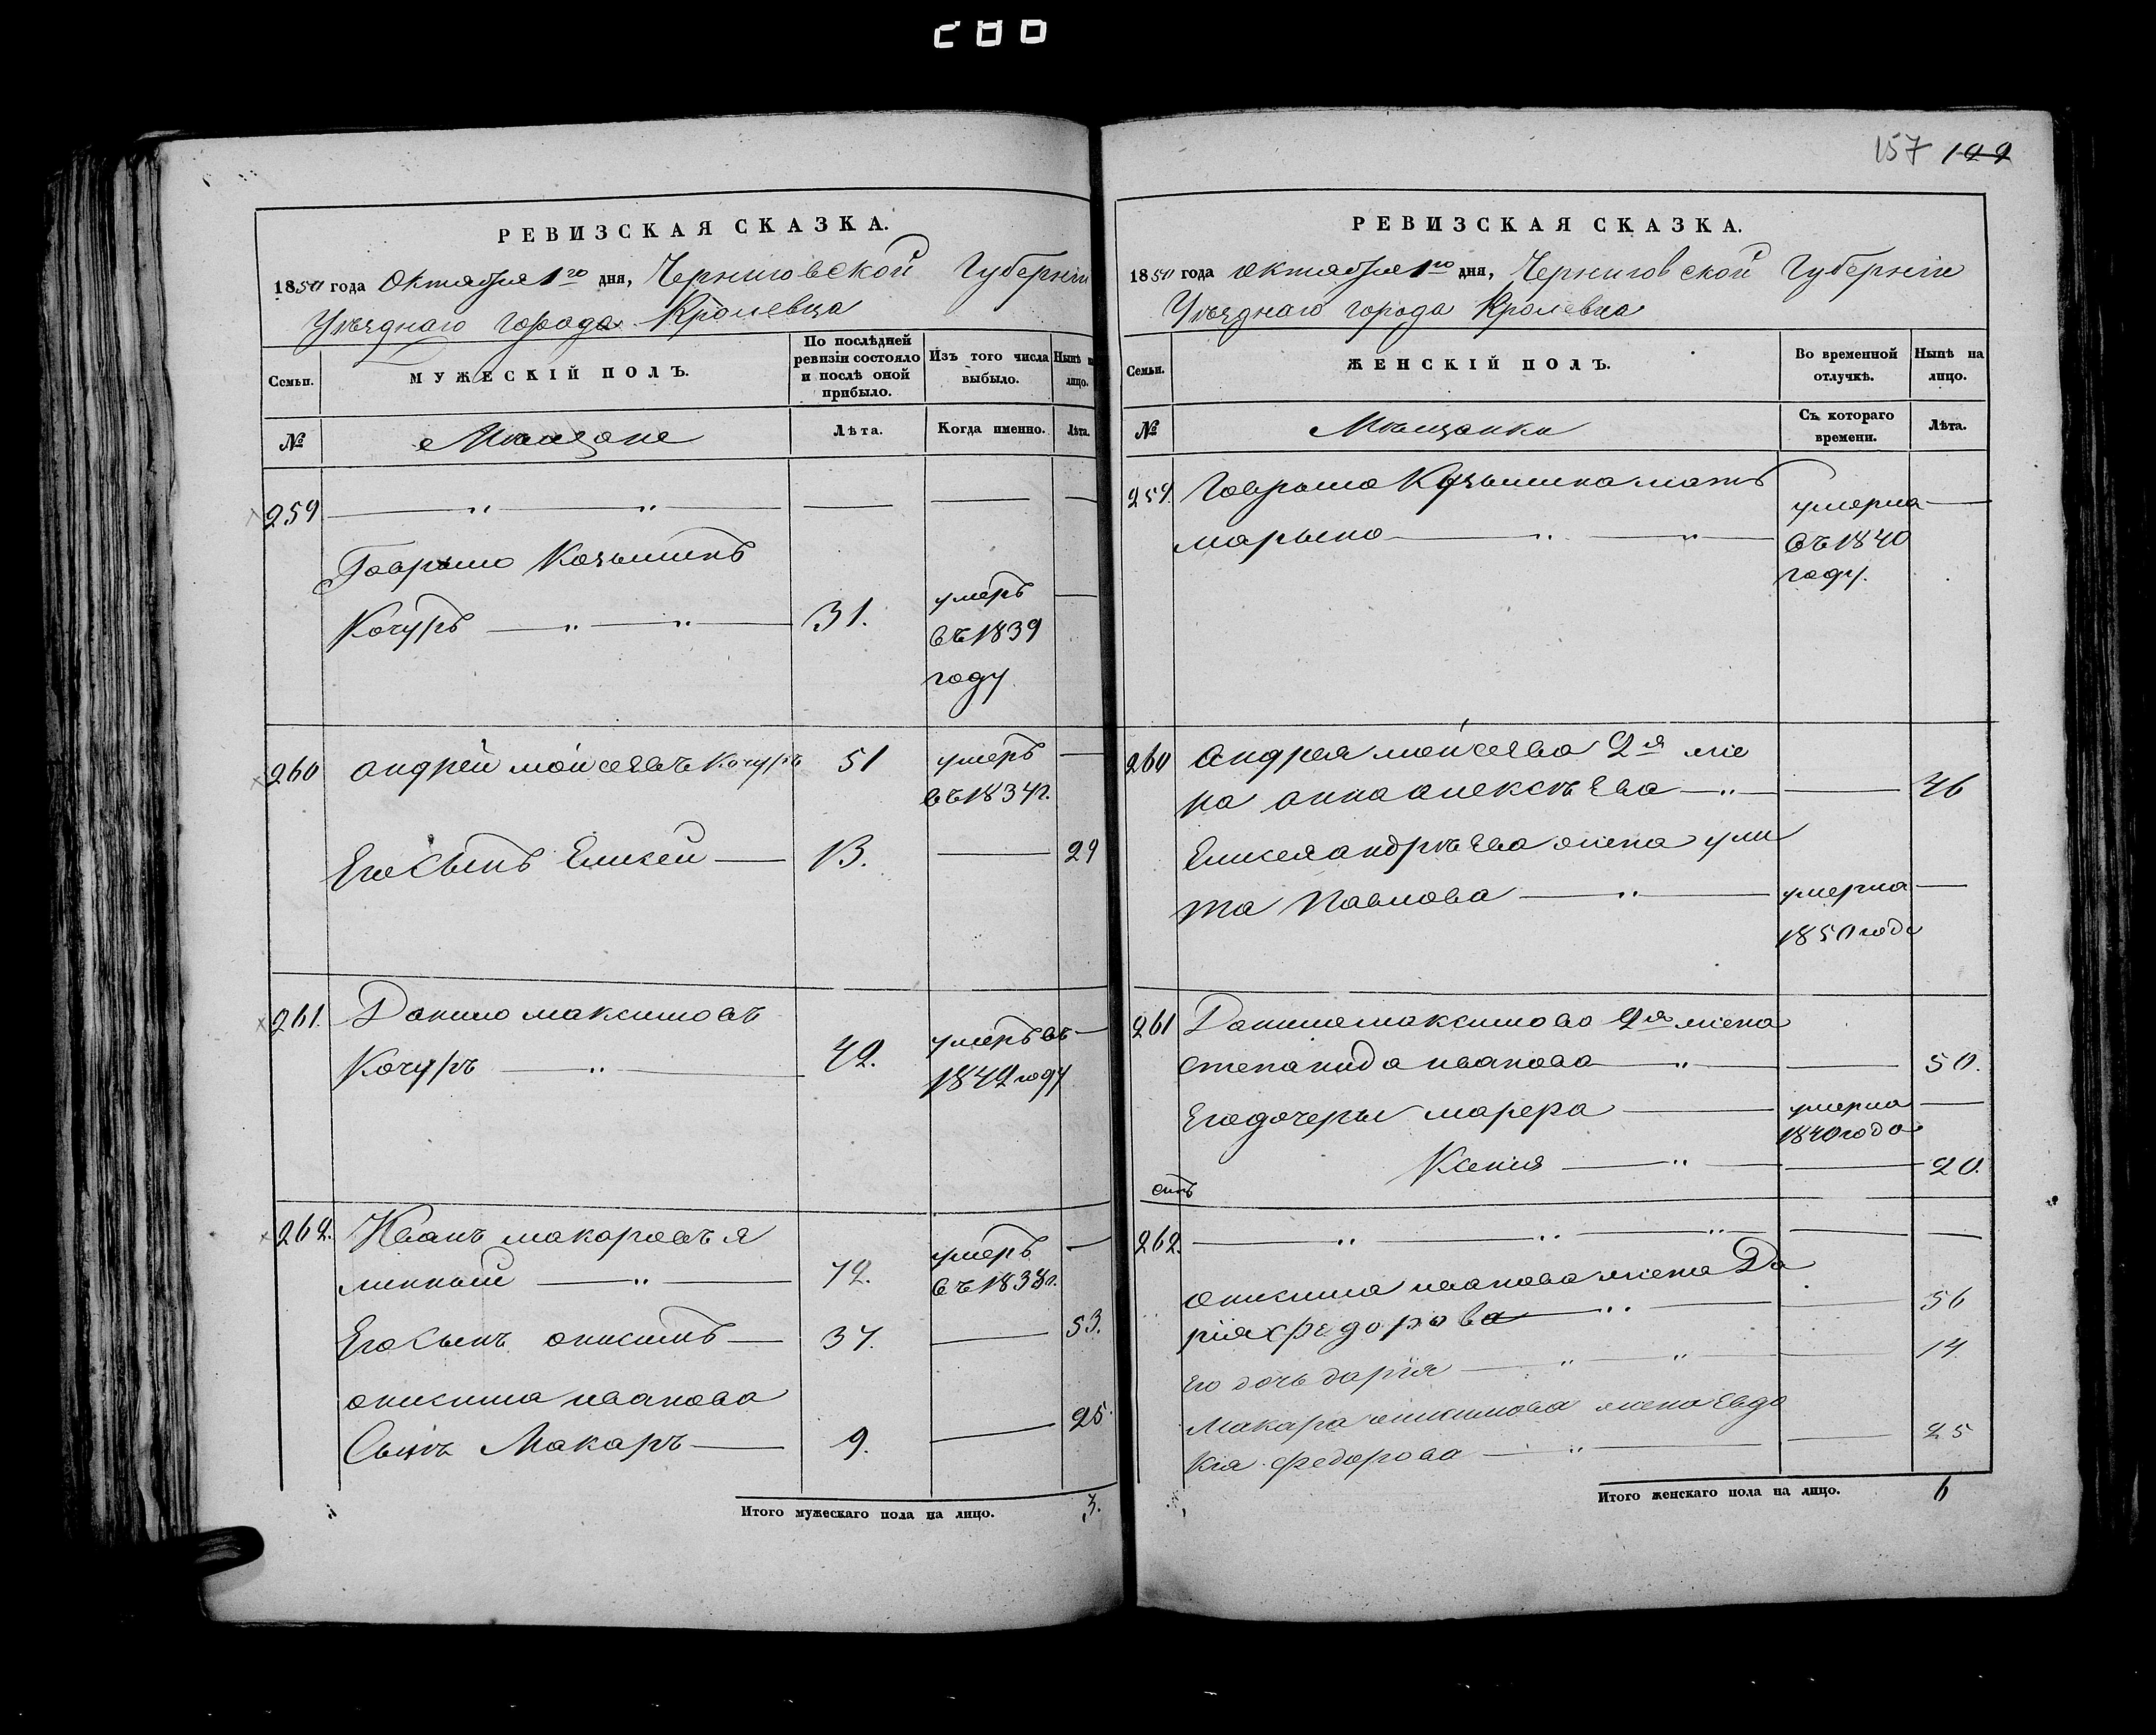 157 109
РЕВИЗСКАЯ СКАЗКА.
1850 года Октября 1го дня, Черниговской Губерніи
Уѣзднаго города Кролевца
Семьи.
МУЖЕСКІЙ ПОЛЪ.
По послѣдней ревизіи состояло и послѣ оной прибыло.
Изъ того числа выбыло.
Нынѣ на лицо.
№
Мѣщане
Лѣта.
Когда именно.
Лѣта.
259
Гаврыло Козьминъ
Кочуръ 31. умеръ
въ 1839
году
260 Андрей Мойсеевъ Кочуръ 51 умеръ
въ 1834 г.
Его Сынъ Елисей 13. 29
261. Данило Максимовъ
Кочуръ 42. умеръ въ
1842 году
262. Иванъ Макаровъ Я
минный 72. умеръ
въ 1838 г.
Его Сынъ Онисимъ 37. 53.
Онисима Иванова
Сынъ Макаръ 9. 25.
Итого мужескаго пола на лицо. 3.
РЕВИЗСКАЯ СКАЗКА.
1850 года Октября 1го дня, Черниговской Губерніи
Уѣзднаго города Кролевца
Семьи.
ЖЕНСКІЙ ПОЛЪ.
Во временной отлучкѣ.
Нынѣ на лицо.
№
Мѣщанки
Съ котораго времени.
Лѣта.
259. Гаврыла Козьмина мать
Марына умерла
въ 1840
году.
260 Андрея Мойсеева 2я же
на Анна Алексѣева 46
Елисея Андрѣева жена Ули
та Павлова умерла
1850 года
261 Данила Максимова 2я жена
Степанида Иванова 50.
Его дочеры Марфа умерла
1840 года
Ксенія 20.
262.
Онисима Иванова жена Да
рія Федорова 56
Его дочь Дарія 14
Макара Онисимова жена Евдо
кія Федорова 25
Итого женскаго пола на лицо. 6